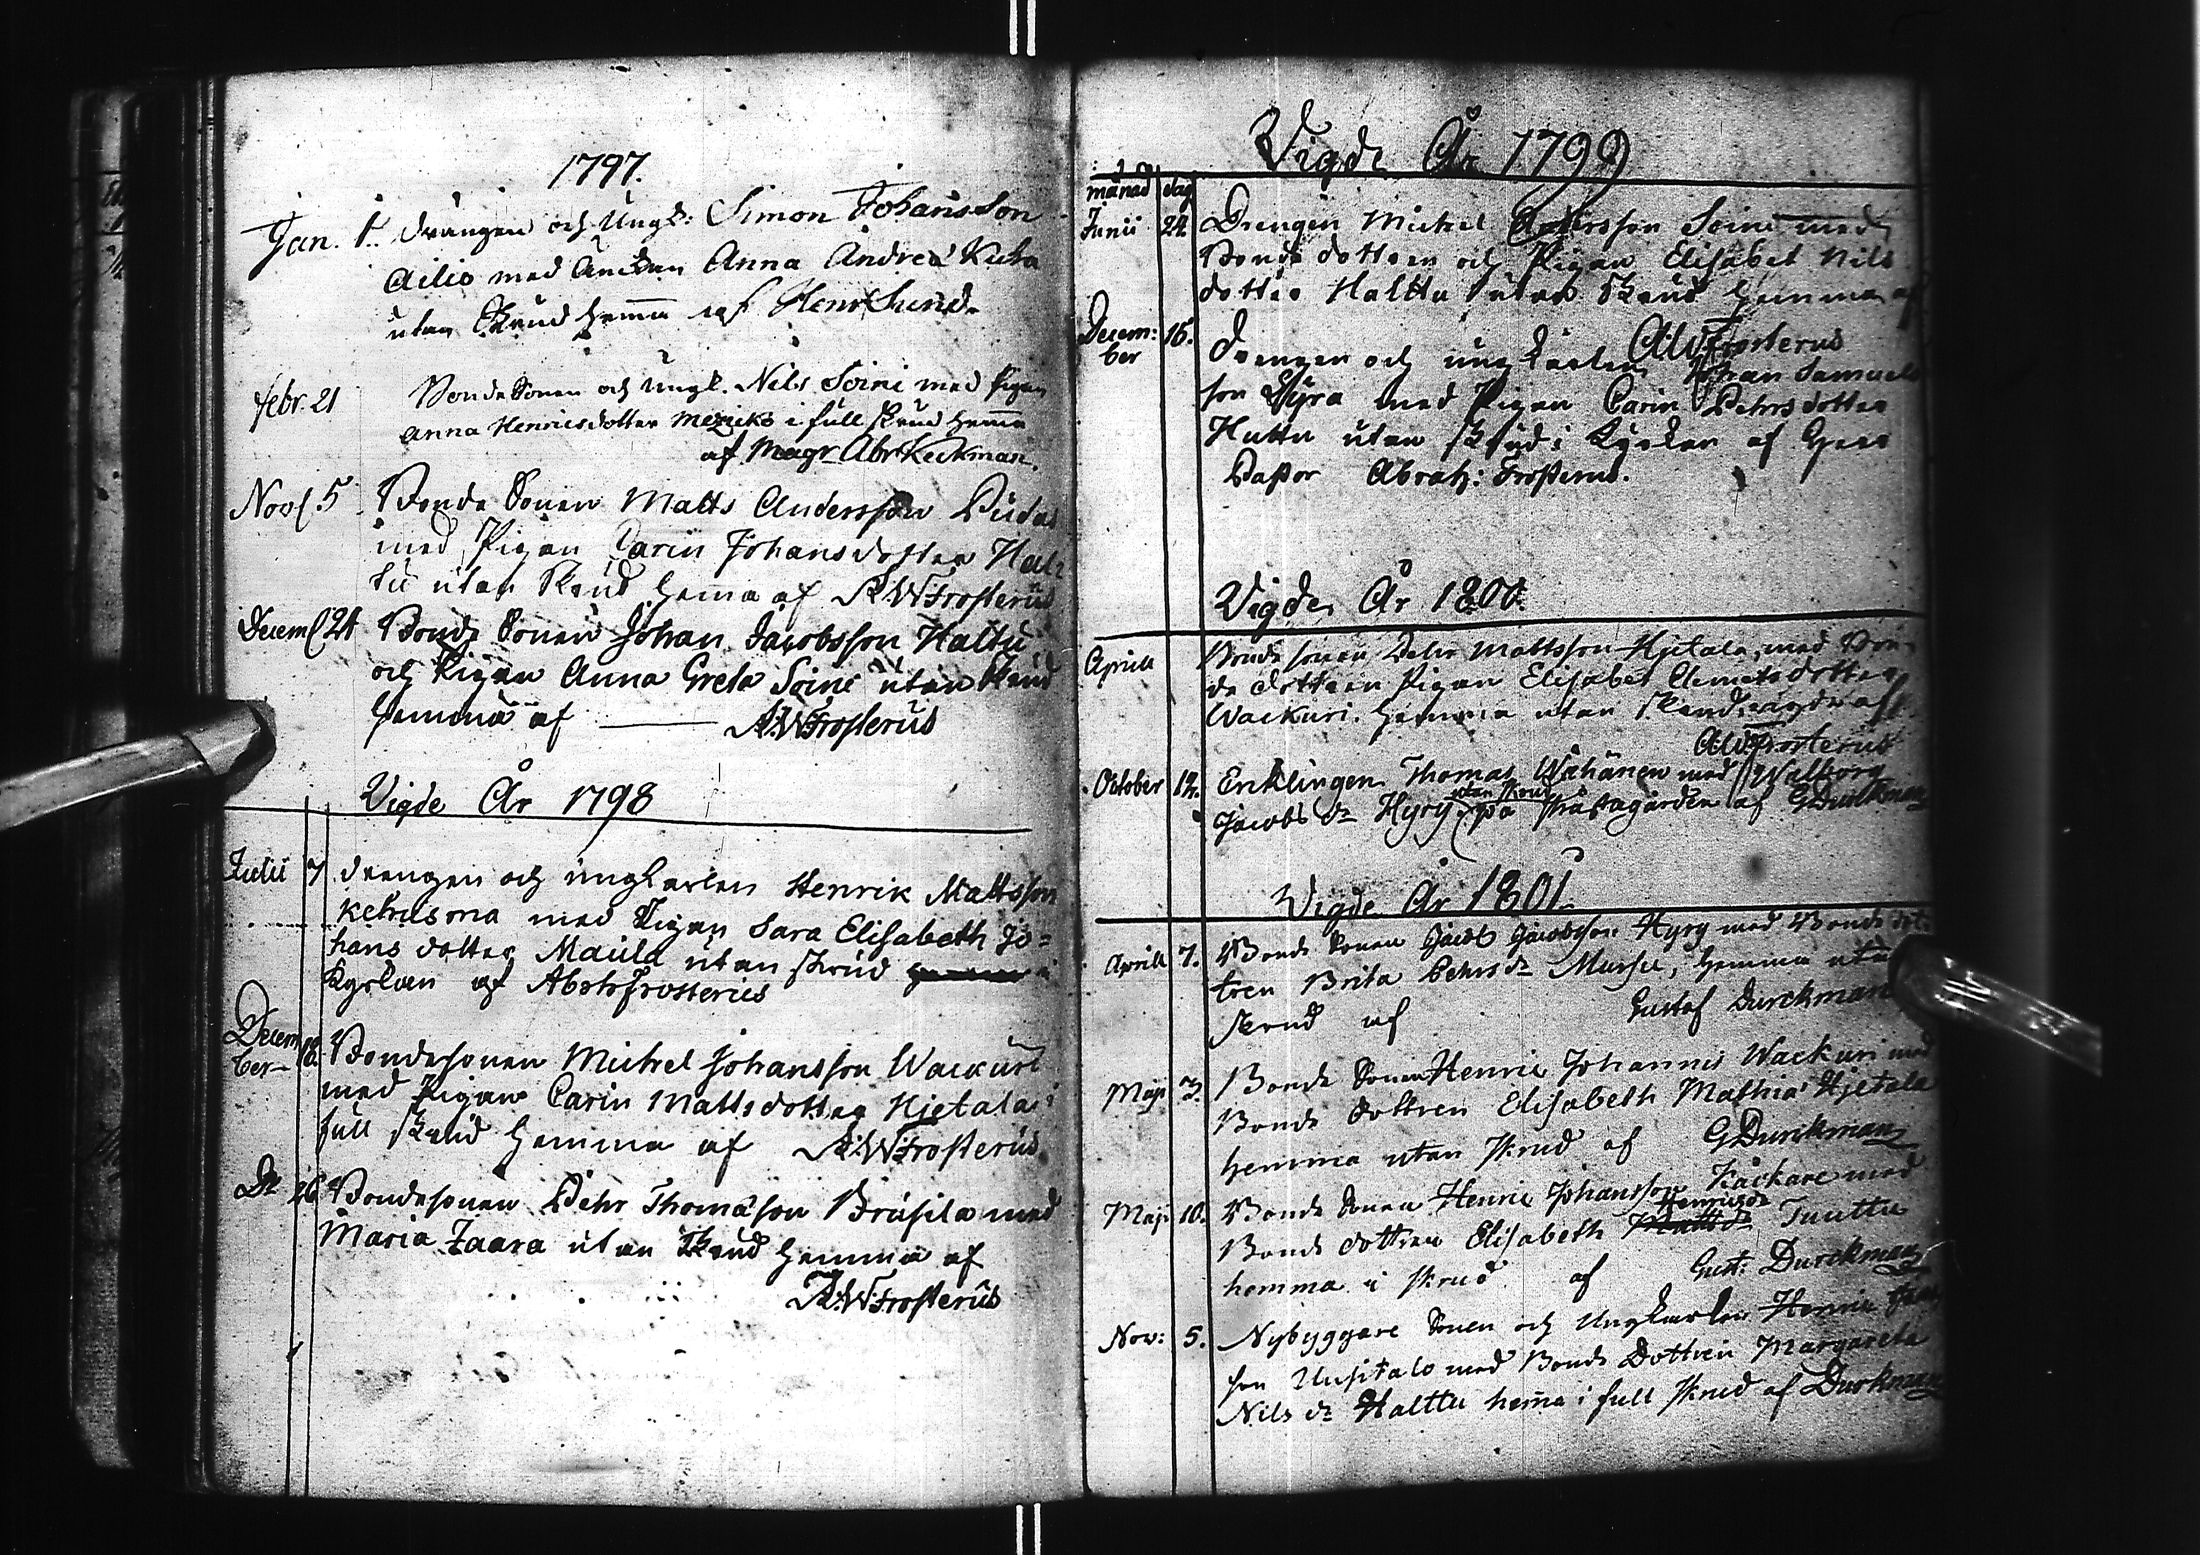 1797.
Jan. 1. drängen och Ungk: Simon Johansson
Ailio med Enckan Anna Andreæ Kuha
utan Skrud hema af Henr Sund.
febr. 21 Bonde Sonen och Ungk. Nils Soini med Pigan
Anna Henricsdotter i full skrud hema
af Magr Abr Keckman.
Nov. 5 Bonde Sonen Matts Andersson Pudas
med Pigan Carin Johansdotter Hal
tu utan Skrud hema af A:W:Frosterus
Decem 24 Bonde Sonen Johan Jacobsson Haltu
och Pigan Anna Greta Soini utan Skrud
hemma af A:W:Frosterus
Vigde År 1798
Julii 7 drengen och ungkarlen Henrik Mattsson
Kehusma med Pigan Sara Elisabeth Jo=
hans dotter Maula utan skrud i
Kyrkan af Abrh Frosterus
Decem
ber 18. Bondesonen Michel Johansson Wackuri
med Pigan Carin Mattsdotter Hjetala i
full Skrud hemma af A:W:Frosterus
Do 26 Bondesonen Pehr Thomasson Brusila med
Maria Zaara utan Skrud hemma af
A:W:Frosterus
Vigde År 1799
månad dag
Junii 24 Drengen Michel Andersson Soini med
Bonde dottren och Pigan Elisabet Nils
dotter Halttu utan skrud hemma af
AWFrosterus
Decem:
ber 16. Drengen och ungkarlen Johan Samuels
son Syra med Pigan Carin Pehrsdotter
Huttu utan skrud i Kyrkan af Herr
Pastor Abrah: Frosterus.
Vigde År 1800.
Aprill Bonde sonen Pehr Mattsson Hjetala, med Bon-
de dottren Pigan Elisabet Clemetsdotter
Wackuri. hemma utan skrud, vigde af
AWFrosterus
October 12. Encklingen Thomas Wähänen med Walborg
utan skrud
Jacobs dr Hyry på Prästagården af GDurckman
Vigde År 1801.
Aprill 7. Bonde Sonen Jacob Jacobsson Hyry med Bonde dot-
tren Brita Pehrs dr Mursu, hemma utan
skrud af Gustaf Durckman
Maji 3. Bonde Sonen Henric Johannis Wackuri med
Bonde dottren Elisabeth Mathiæ Hjetala
hemma utan skrud af GDurckman
Maji 10. Bonde Sonen Henric Johansson Kåckare med
Henrics dr
Bonde dottren Elisabeth Matts dr Tuuttu
hemma i skrud af Gust: Durckman
Nov: 5. Nybyggare Sonen och Ungkarlen Henric
son Uusitalo med Bonde Dottren Margareta
Nils dr Halttu hema i full skrud af Durkman